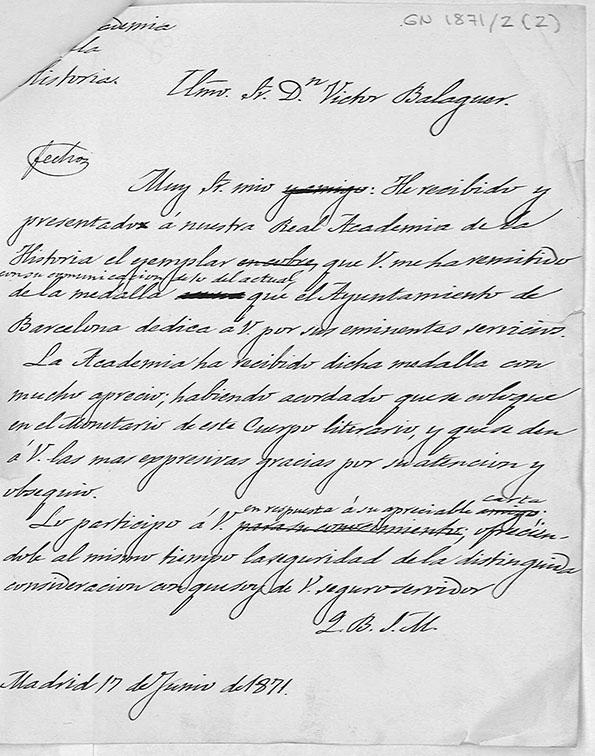 GN 1871/2 (2)
Academia
la
Historia.
Ilmo. Sr. Dn Victor Balaguer.
fecho
Muy Sr. mio y amigo: He recibido y
presentado á nuestra Real Academia de la
Historia el ejemplar en cobre, que V. me ha remitido
con su comunicacion de 10 del actual,
de la medalla que el Ayuntamiento de
Barcelona dedica á V. por sus eminentes servicios.
La Academia ha recibido dicha medalla con
mucho aprecio; habiendo acordado que se coloque
en el Monetario de este Cuerpo literario, y que se den
á V. las mas expresivas gracias por su atencion y
obsequio.
en respuesta á su apreciable carta
Lo participo á V. para su conocimiento, amigo: ofrecien-
dole al mismo tiempo la seguridad de la distinguida
consideracion con que soy de V. seguro servidor
Q. B. S. M.
Madrid 17 de Junio de 1871.